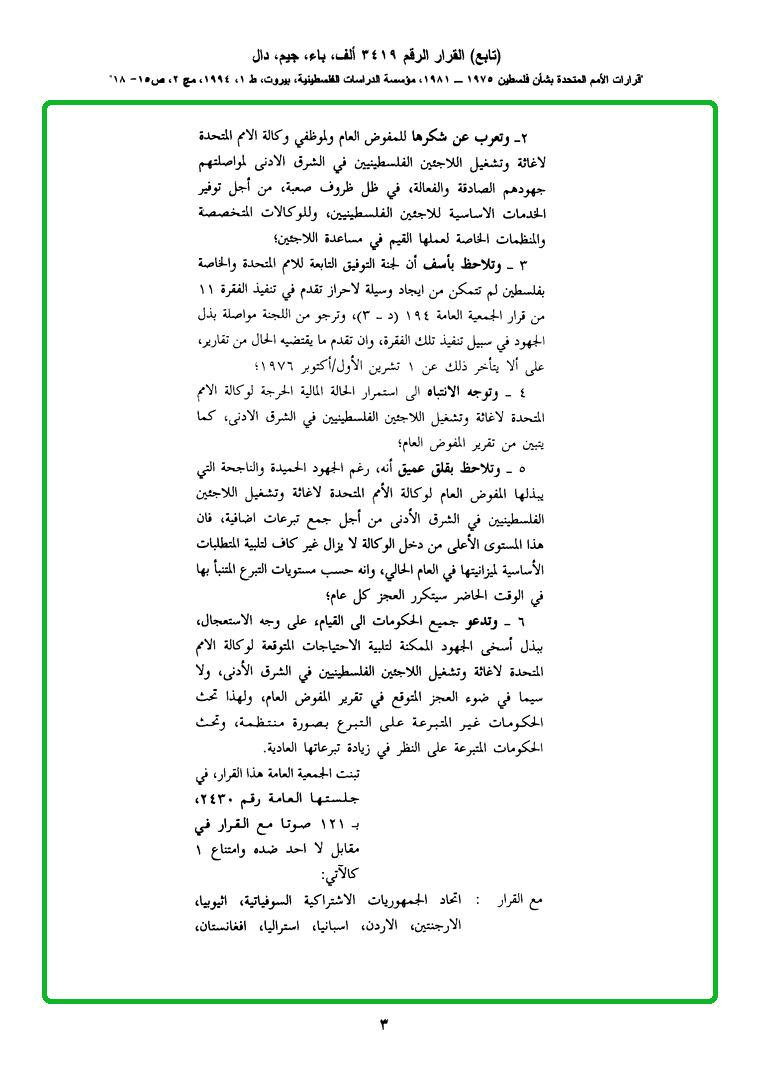 (تابع) القرار الرقم ٣٤١٩ ألف، باء، جيم، دال
"قرارات الأمم المتحدة بشأن فلسطين ١٩٧٥ ــ ١٩٨١، مؤسسة الدراسات الفلسطينية، بيروت، ط ١، ١٩٩٤، مج ٢، ص١٥- ١٨"
٢ـ وتعرب عن شكرها للمفوض العام ولموظفي وكالة الامم المتحدة
لاغاثة وتشغيل اللاجئين الفلسطينيين في الشرق الادنى لمواصلتهم
جهودهم الصادقة والفعالة، في ظل ظروف صعبة، من أجل توفير
الخدمات الاساسية للاجئين الفلسطينيين، وللوكالات المتخصصة
والمنظمات الخاصة لعملها القيم في مساعدة اللاجئين؛
٣ ـ وتلاحظ بأسف أن لجنة التوفيق التابعة للامم المتحدة والخاصة
بفلسطين لم تتمكن من ايجاد وسيلة لاحراز تقدم في تنفيذ الفقرة ١١
من قرار الجمعية العامة ١٩٤ (د ـ ٣)، وترجو من اللجنة مواصلة بذل
الجهود في سبيل تنفيذ تلك الفقرة، وان تقدم ما يقتضيه الحال من تقارير،
على ألا يتأخر ذلك عن ١ تشرين الأول/أكتوبر ١٩٧٦؛
٤ ـ وتوجه الانتباه الى استمرار الحالة المالية الحرجة لوكالة الامم
المتحدة لاغاثة وتشغيل اللاجئين الفلسطينيين في الشرق الادنى، كما
يتبين من تقرير المفوض العام؛
٥ ـ وتلاحظ بقلق عميق أنه، رغم الجهود الحميدة والناجحة التي
يبذلها المفوض العام لوكالة الأمم المتحدة لاغاثة وتشغيل اللاجئين
الفلسطينيين في الشرق الأدنى من أجل جمع تبرعات اضافية، فان
هذا المستوى الأعلى من دخل الوكالة لا يزال غير كاف لتلبية المتطلبات
الأساسية لميزانيتها في العام الحالي، وانه حسب مستويات التبرع المتنبأ بها
في الوقت الحاضر سيتكرر العجز كل عام؛
٦ ـ وتدعو جميع الحكومات الى القيام، على وجه الاستعجال،
ببذل أسخى الجهود الممكنة لتلبية الاحتياجات المتوقعة لوكالة الامم
المتحدة لاغاثة وتشغيل اللاجئين الفلسطينيين في الشرق الأدنى، ولا
سيما في ضوء العجز المتوقع في تقرير المفوض العام، ولهذا تحث
الحكومات غير المتبرعة على التبرع بصورة منتظمة، وتحث
الحكومات المتبرعة على النظر في زيادة تبرعاتها العادية.
تبنت الجمعية العامة هذا القرار، في
جلستها العامة رقم ٢٤٣٠،
بـ ١٢١ صوتا مع القرار في
مقابل لا احد ضده وامتناع ١
كالآتي:
مع القرار : اتحاد الجمهوريات الاشتراكية السوفياتية، اثيوبيا،
الارجنتين، الاردن، اسبانيا، استراليا، افغانستان،
٣